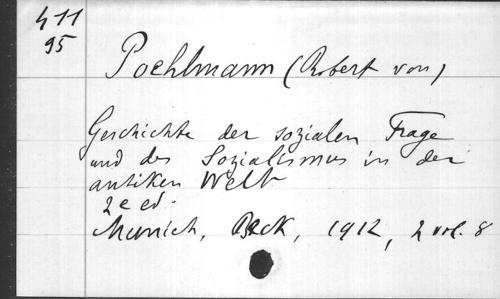 411
95
Poehlmann (Robert von)
Geschichte der sozialen Frage
und des Sozialismus in der
antiken Welt
2e ed.
Munich, Beck, 1912, 2 vol. 8